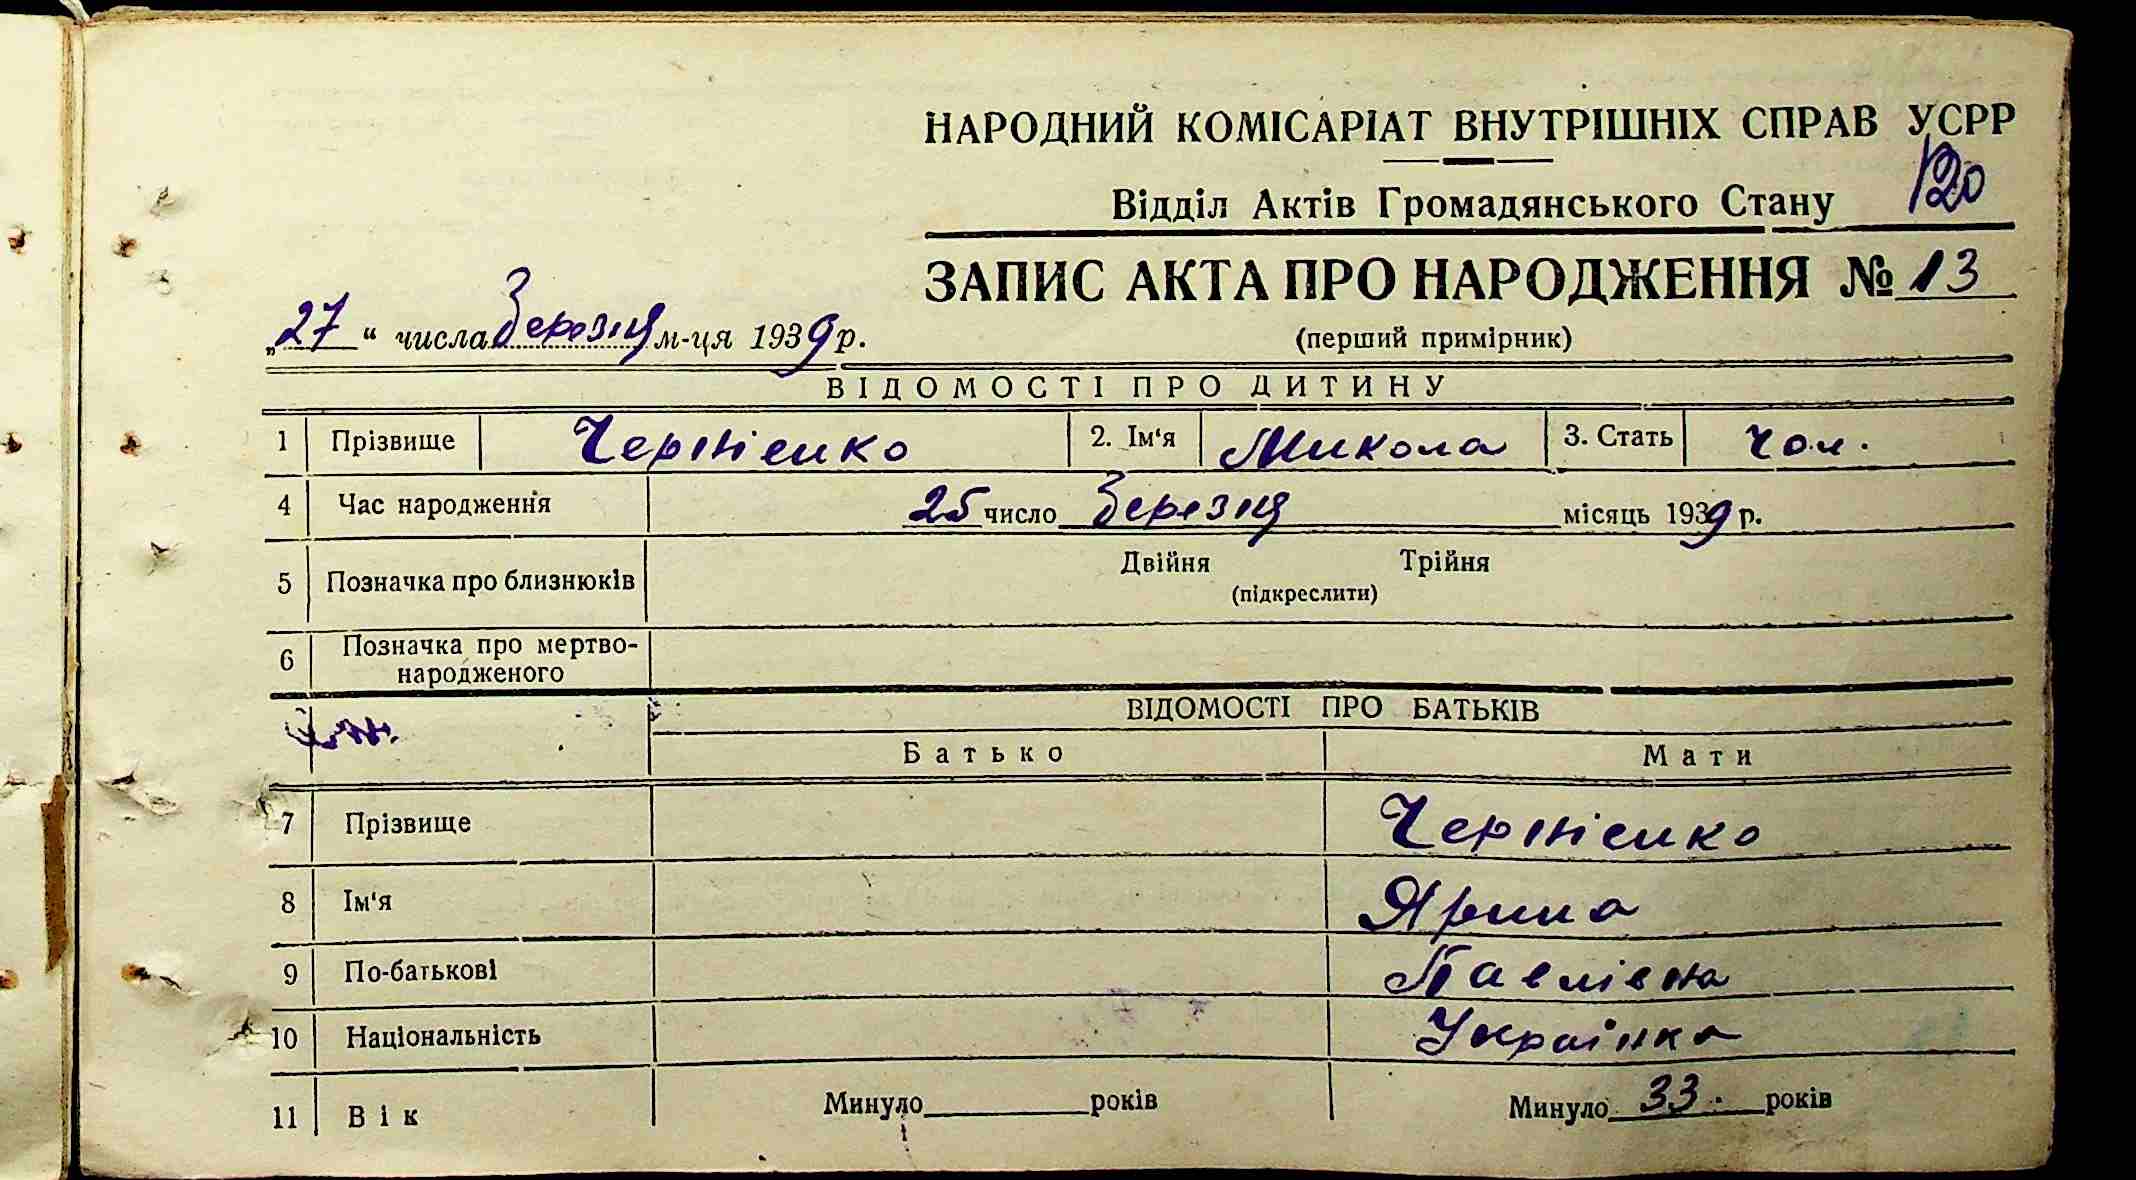 НАРОДНИЙ КОМІСАРІАТ ВНУТРІШНІХ СПРАВ УСРР
120
Відділ Актів Громадянського Стану
ЗАПИС АКТА ПРО НАРОДЖЕННЯ № 13
„27“ числа Березня м-ця 1939 р.
(перший примірник)
ВІДОМОСТІ ПРО ДИТИНУ
1 Прізвище Чернієнко 2. Ім‘я Микола 3. Стать Чол.
4 Час народження 25 число Березня місяць 1939 р.
5 Позначка про близнюків Двійня Трійня
(підкреслити)
6 Позначка про мертво-
народженого
ВІДОМОСТІ ПРО БАТЬКІВ
Батько Мати
7 Прізвище Чернієнко
8 Ім‘я Ярина
9 По-батькові Павлівна
10 Національність Українка
11 Вік Минуло року років Минуло 33. років